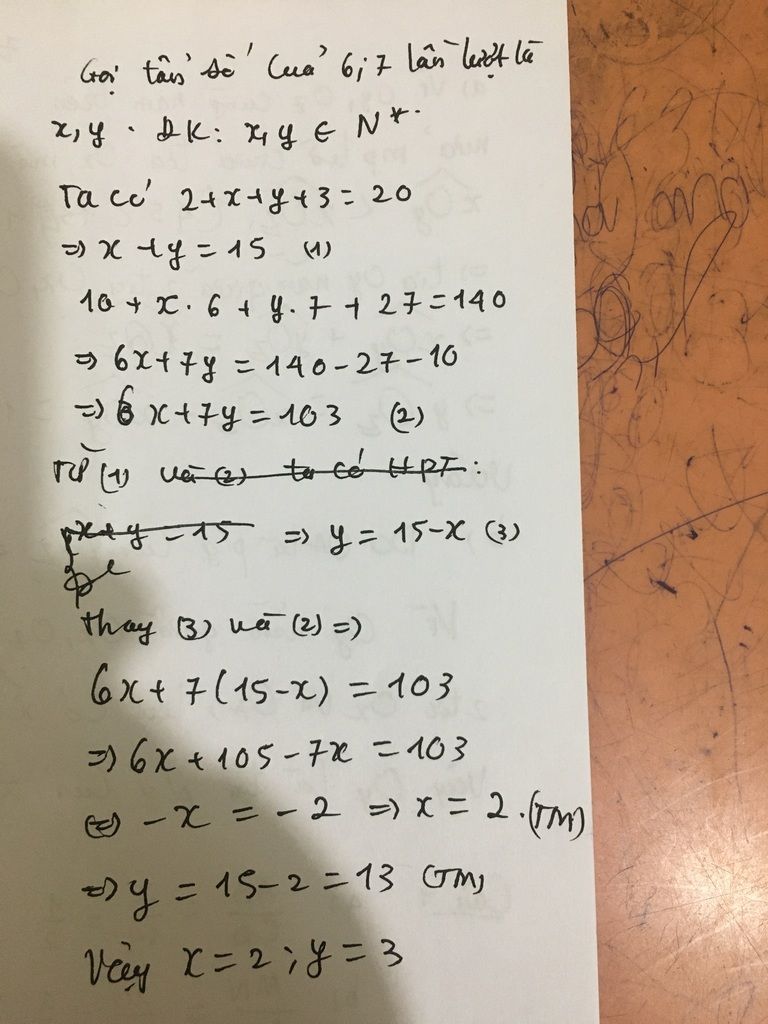 Gọi tần số của 6; 7 lần lượt là
x, y. ĐK: x, y ∈ N*.
Ta có 2+x+y+3 = 20
=> x + y = 15 (1)
10 + x.6 + y.7 + 27 = 140
=> 6x+7y = 140-27-10
=> 6x+7y = 103 (2)
Từ (1) và (2) ta có HPT:
x+y = 15 => y = 15-x (3)
thay (3) và (2) =>
6x+ 7(15-x) = 103
=> 6x + 105 - 7x = 103
<=> -x = -2 => x = 2. (TM)
=> y = 15-2 = 13 (TM)
Vậy x = 2; y = 3